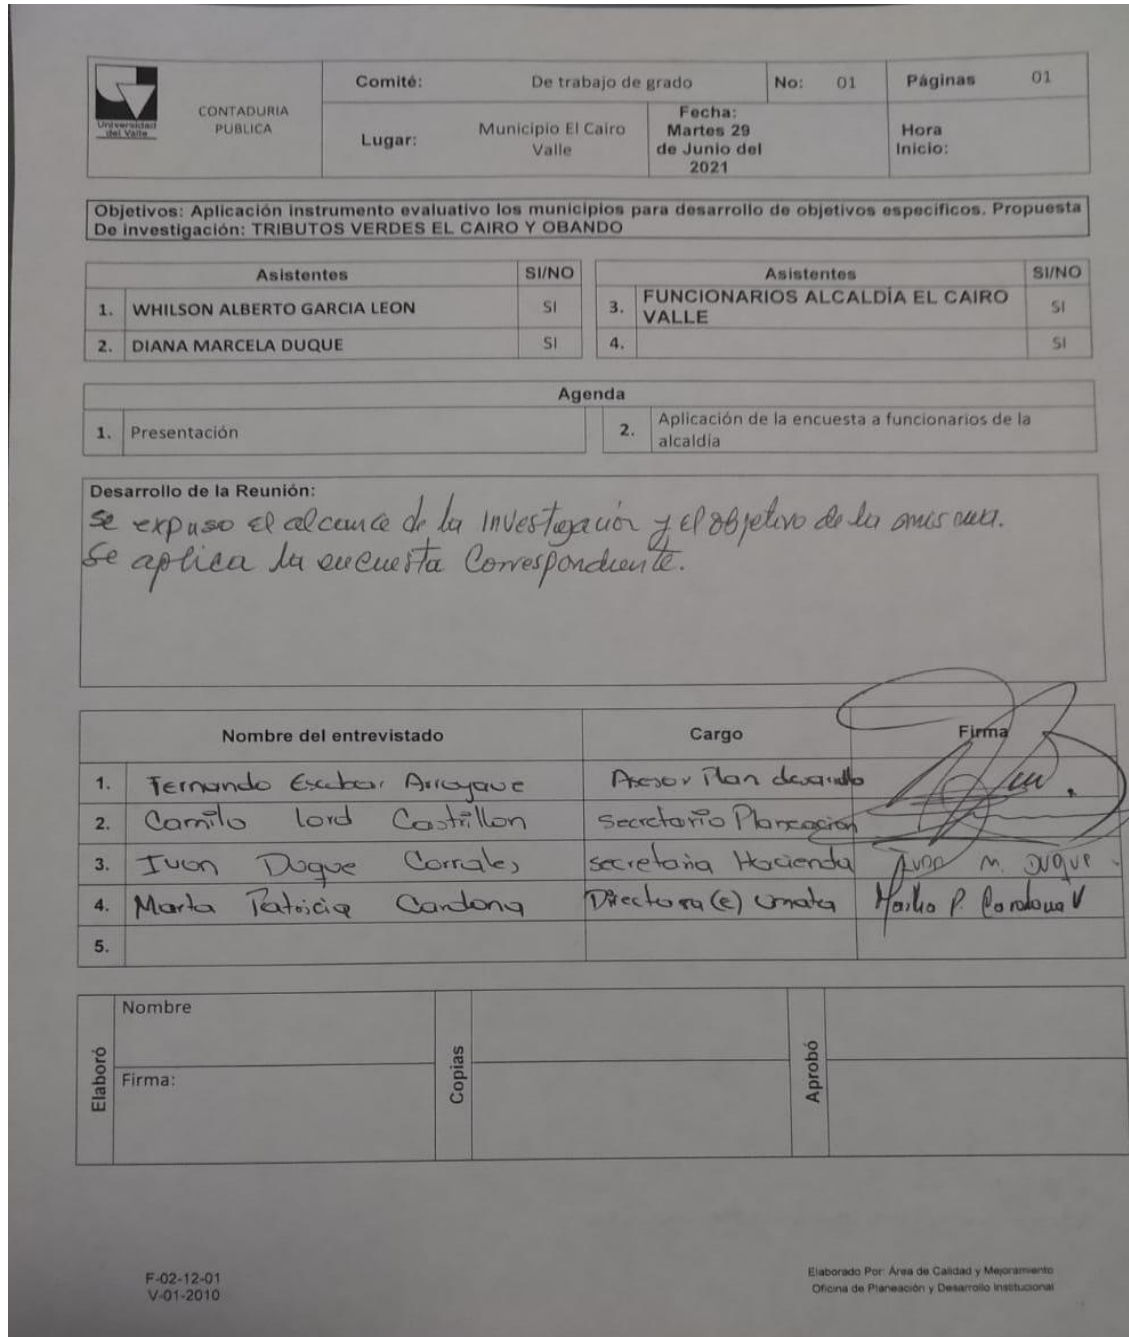 Universidad
del Valle
CONTADURIA
PUBLICA
Comité: De trabajo de grado No: 01 Páginas 01
Lugar: Municipio El Cairo
Valle
Fecha:
Martes 29
de Junio del
2021
Hora
Inicio:
Objetivos: Aplicación instrumento evaluativo los municipios para desarrollo de objetivos específicos. Propuesta
De investigación: TRIBUTOS VERDES EL CAIRO Y OBANDO
Asistentes SI/NO Asistentes SI/NO
1. WHILSON ALBERTO GARCIA LEON SI 3. FUNCIONARIOS ALCALDÍA EL CAIRO
VALLE SI
2. DIANA MARCELA DUQUE SI 4. SI
Agenda
1. Presentación 2. Aplicación de la encuesta a funcionarios de la
alcaldía
Desarrollo de la Reunión:
Se expuso el alcance de la investigación y el objetivo de la misma.
Se aplica la encuesta Correspondiente.
Nombre del entrevistado Cargo Firma
1. Fernando Escobar Arroyave Asesor Plan desarrollo
2. Camilo Lord Castrillon Secretario Planeación
3. Ivon Duque Corrales secretaria Hacienda Ivon M. Duque
4. Marta Patricia Cardona Directora (e) Umata Martha P. Cardona V
5.
Elaboró
Nombre
Firma:
Copias
Aprobó
F-02-12-01
V-01-2010
Elaborado Por: Área de Calidad y Mejoramiento
Oficina de Planeación y Desarrollo Institucional